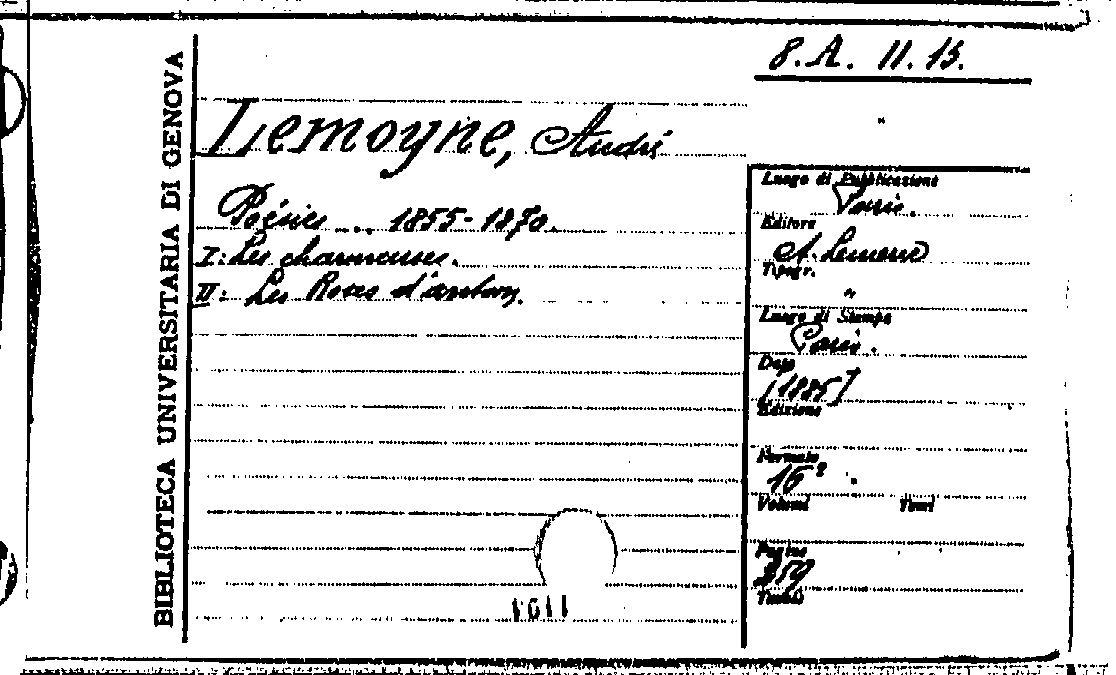 BIBLIOTECA UNIVERSITARIA DI GENOVA
8.A. 11.13.
Lemoyne, André
"
Poésies ... 1855-1870.
I: Les charmeuses.
II: Les Roses d'antan.
Luogo di Pubblicazione
Paris.
Editore
A. Lemerre
Tipogr.
"
Luogo di Stampa
Paris.
Data
[1885]
Edizione
Formato
16°.
Volumi Tomi
Pagine
259
Tavole